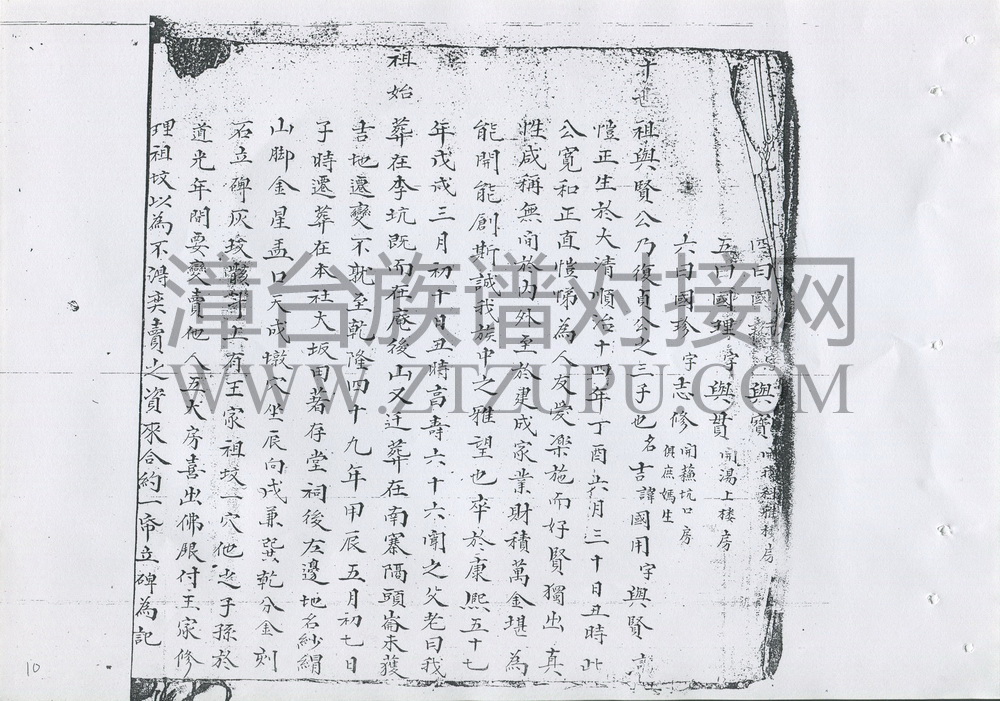 四曰國 與寶 開 房
五曰國理 字與貫 開湯上楼房
六曰國珍 字志修 開蘓坑口房 俱庶媽生
十世
祖與賢公乃復貞公之三子也名吉諱國用字與賢
愷正生於大清順治十四年丁酉六月三十日丑時此
公寬和正直愷悌為人友愛樂施而好賢獨出真
性咸稱無间於內外至於建成家業財積萬金堪為
能開能創斯誠我族中之雅望也卒於康熙五十七
年戊戌三月初十日丑時高壽六十六聞之父老曰我
始祖
葬在李坑既而在庵後山又迁葬在南寨隔頭崙未獲
吉地遷變不就至乾隆四十九年甲辰五月初七日
子時遷葬在本社大坂田著存堂祠後左邊地名紗絹
山脚金星盂口天成墩穴坐辰向戌兼巽乾分金刻
石立碑灰 上有王家祖坟一穴他之子孫於
道光年間要變賣他人五大房喜出佛眼付王家修
理祖坟以為不淂奕賣之資來合約一帋立碑為記
漳台族谱对接网
WWW.ZTZUPU.COM
10